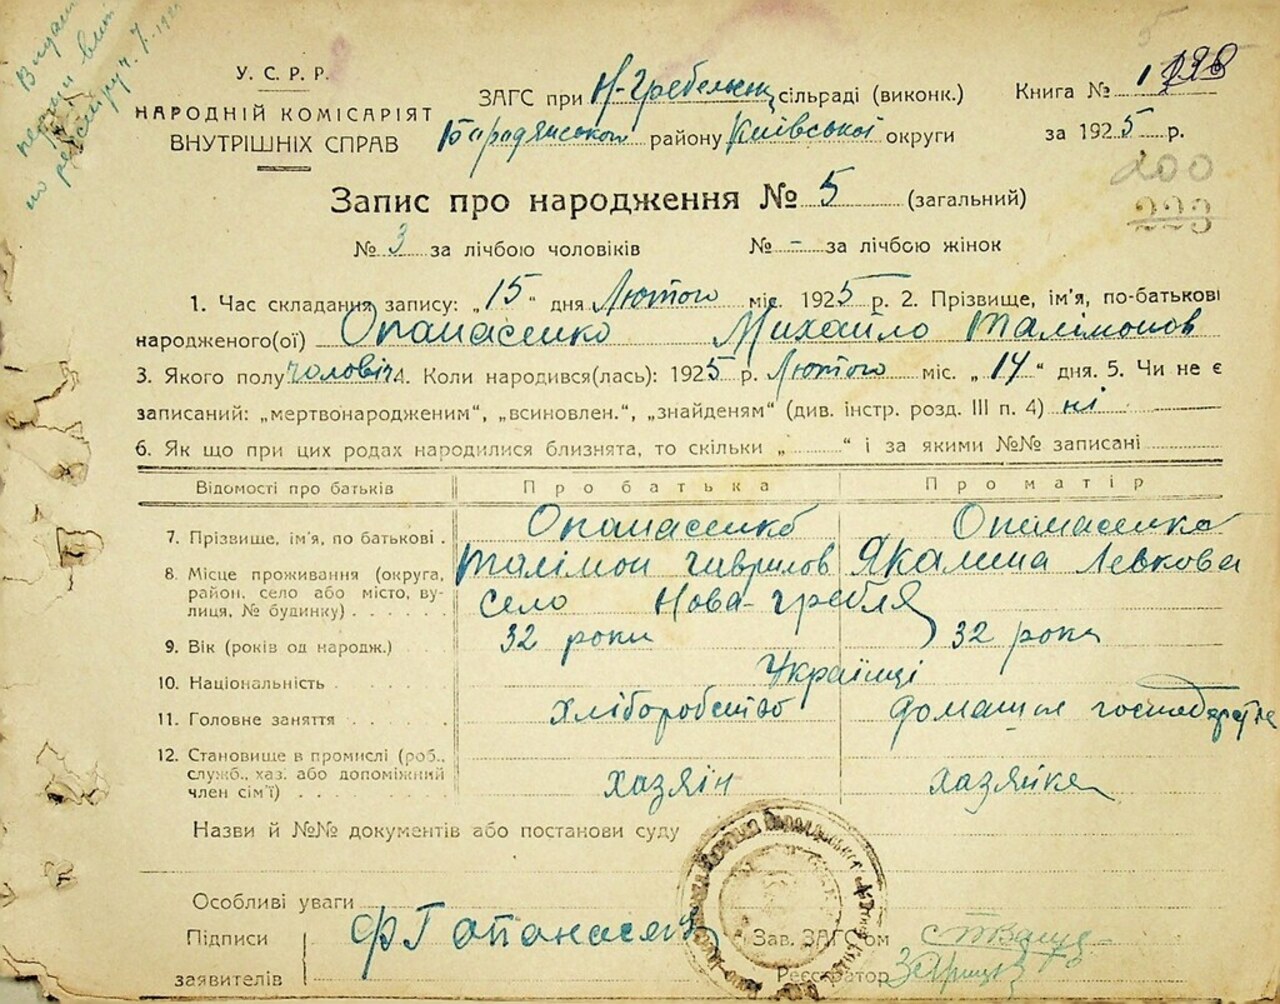 У. С. Р. Р.
НАРОДНІЙ КОМІСАРІЯТ
ВНУТРІШНІХ СПРАВ
ЗАГС при Н-Гребельск сільраді (виконк.)
Бародянського району Київської округи
Книга № 1
за 1925 р.
200
223
Запис про народження № 5 (загальний)
№ 3 за лічбою чоловіків № - за лічбою жінок
1. Час складання запису: „15" дня Лютого міс. 1925 р. 2. Прізвище, ім'я, по-батькові
народженого(ої) Опанасенко Михайло Талімонов
3. Якого полу чоловіч 4. Коли народився(лась): 1925 р. Лютого міс. „14" дня. 5. Чи не є
записаний: „мертвонародженим", „всиновлен.", „знайденям" (див. інстр. розд. III п. 4) ні
6. Як що при цих родах народилися близнята, то скільки „ " і за якими №№ записані
Відомості про батьків Про батька Про матір
7. Прізвище, ім'я, по батькові . Опанасенко Опанасенко
Талімон Гаврилов Якилина Левкова
8. Місце проживання (округа,
район, село або місто, ву-
лиця, № будинку) . . . . село Нова-Гребля
9. Вік (років од народж.) 32 роки 32 роки
10. Національність . . . . . Українці
11. Головне заняття . . . . . хліборобство домашнє господарство
12. Становище в промислі (роб.,
служб., хаз. або допоміжний
член сім'ї) . . . . . . . хазяїн хазяйка
Назви й №№ документів або постанови суду
Особливі уваги
Підписи
заявителів
Зав. ЗАГС'ом
Реєстратор